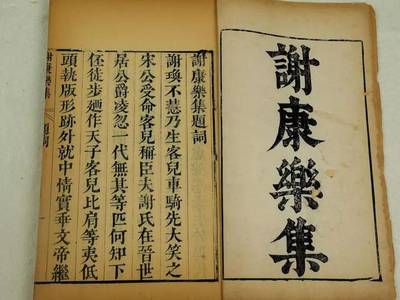 謝康樂集
謝康樂集題詞
謝瑍不慧乃生客兒車騎先大笑之
宋公受命客兒稱臣夫謝氏在晉世
居公爵凌忽一代無其等匹何知下
伾徒步廼作天子客兒比肩等夷低
頭執版形跡外就中情實乖文帝繼
謝康樂集
題詞
一